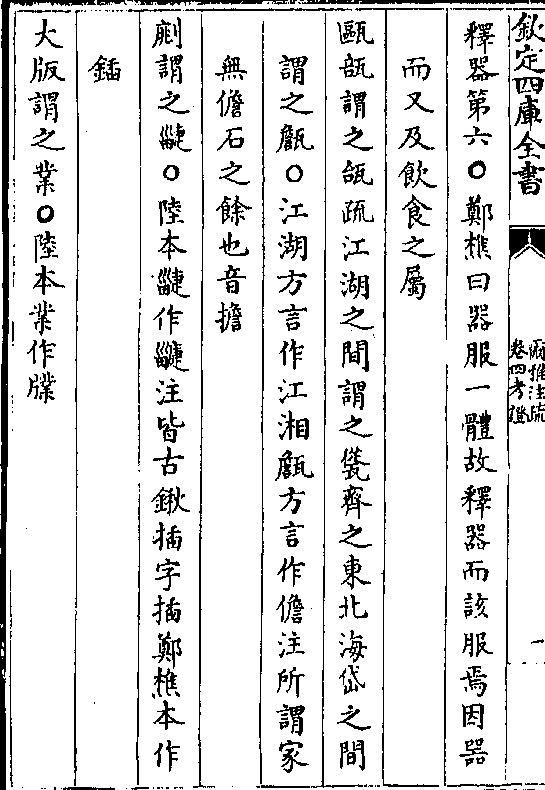 欽定四庫全書
爾雅注疏
卷四考證
一
釋器第六○鄭樵曰器服一體故釋器而該服焉因器
而又及飲食之屬
甌瓿謂之瓵疏江湖之間謂之㼜齊之東北海岱之間
謂之甔○江湖方言作江湘甔方言作儋注所謂家
無儋石之餘也音擔
㔉謂之疀○陸本疀作疀注皆古鍬插字插鄭樵本作
鍤
大版謂之業○陸本業作牒